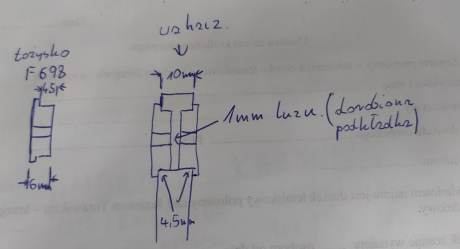 uszcz.
Łożysko
F 698
4,5
10mm
1mm luzu. (dorobiona
podkładka)
6mm
4,5mm